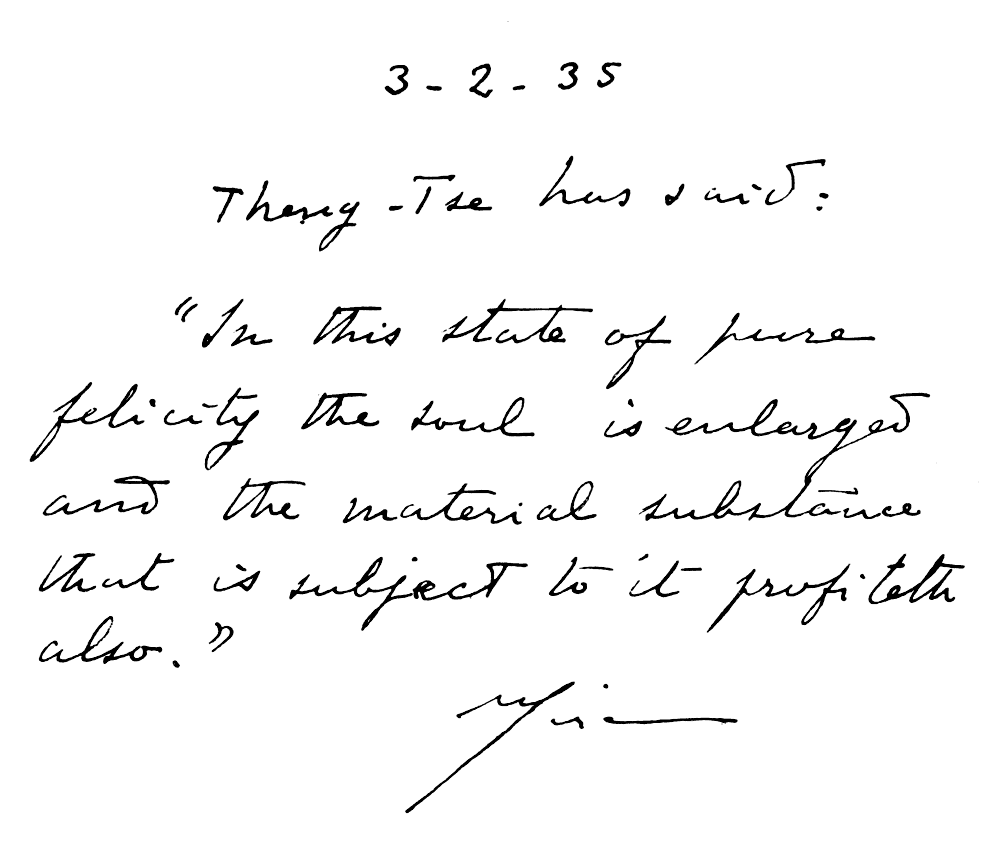 3-2-35
Theng-Tse has said:
"In this state of pure
felicity the soul is enlarged
and the material substance
that is subject to it profiteth
also."
Mira